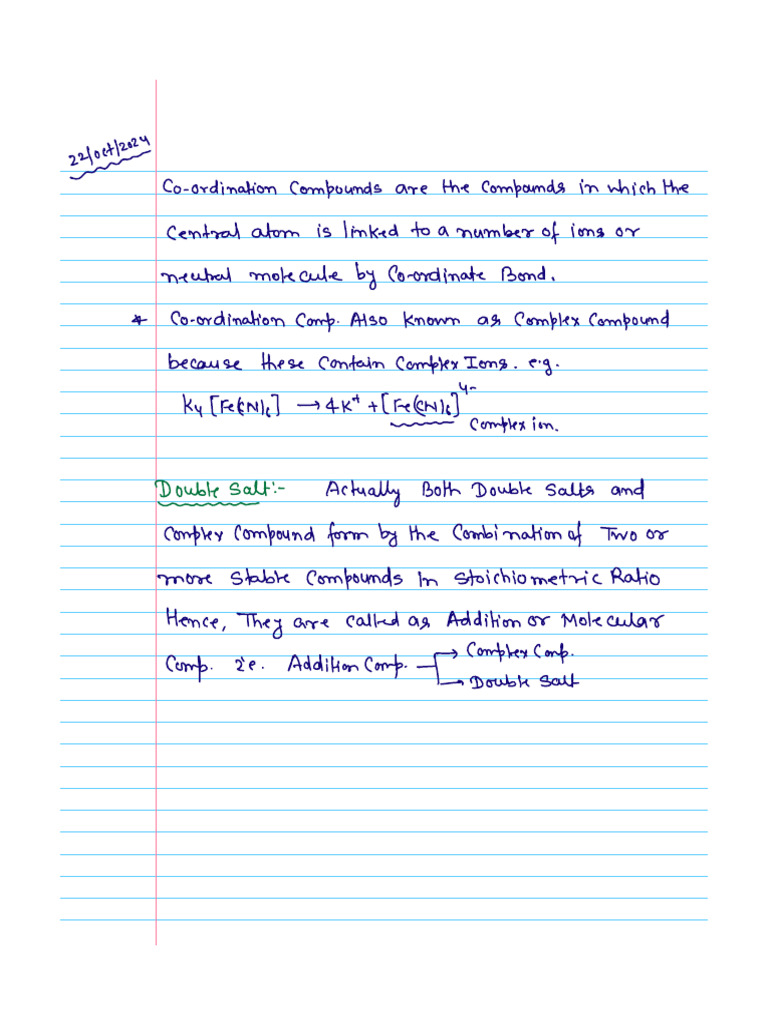 22/oct/2024
Co-ordination Compounds are the Compounds in which the
Central atom is linked to a number of ions or
neutral molecule by Co-ordinate Bond.
* Co-ordination Comp. Also known as Complex Compound
because these Contain Complex Ions. e.g.
K₄[Fe(CN)₆] → 4K⁺ + [Fe(CN)₆]⁴⁻
Complex ion.
Double Salt:- Actually Both Double Salts and
Complex Compound form by the Combination of Two or
more Stable Compounds In Stoichiometric Ratio
Hence, They are called as Addition or Molecular
Comp. i.e. Addition Comp. → Complex Comp.
→ Double Salt